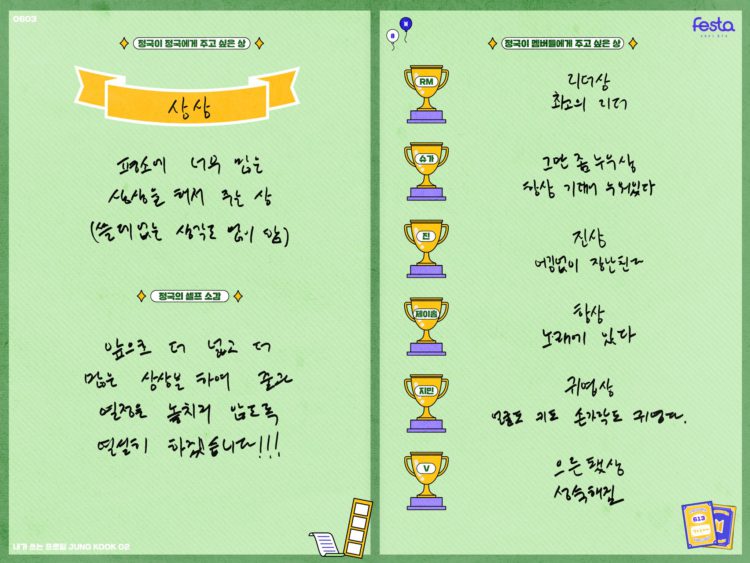 0603
정국이 정국에게 주고 싶은 상
상상
평소에 너무 많은
상상을 해서 주는 상
(쓸데없는 생각도 많이 함)
정국의 셀프 소감
앞으로 더 넓고 더
많은 상상을 하여
열정을 놓치지 않도록
열심히 하겠습니다!!!
내가 쓰는 프로필 JUNG KOOK 02
festa
정국이 멤버들에게 주고 싶은 상
RM
리더상
최고의 리더
슈가
그만 좀 누우상
항상 기대어 누워있다
진
진상
어김없이 장난친다
제이홉
항상
있다
지민
귀엽상
얼굴도 키도 손가락도 귀엽다.
V
으른 됐상
성숙해짐
613